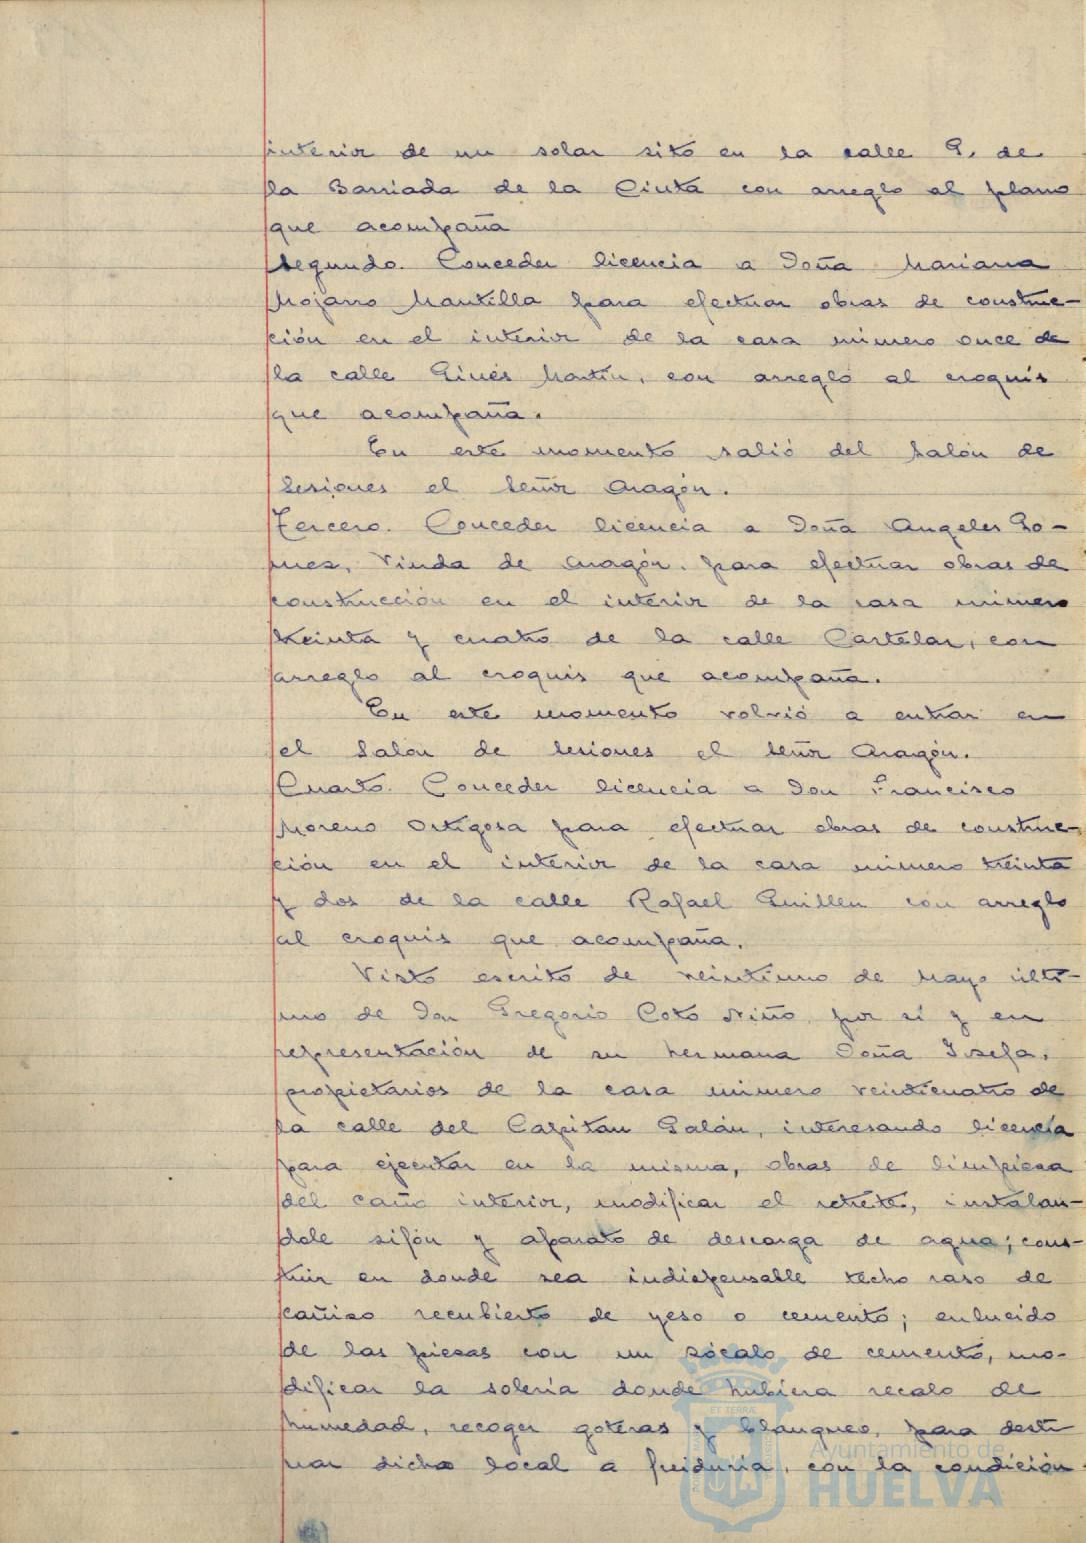 interior de un solar sito en la calle G. de
la Barriada de la Cinta con arreglo al plano
que acompaña
Segundo. Conceder licencia a Doña Mariana
Mojarro Mantilla para efectuar obras de construc-
ción en el interior de la casa número once de
la calle Ginés Martín, con arreglo al croquis
que acompaña.
En este momento salió del Salón de
Sesiones el Señor Aragón.
Tercero. Conceder licencia a Doña Angeles Go-
mez, Viuda de Aragón, para efectuar obras de
construcción en el interior de la casa número
treinta y cuatro de la calle Castelar, con
arreglo al croquis que acompaña.
En este momento volvió a entrar en
el Salón de Sesiones el Señor Aragón.
Cuarto. Conceder licencia a Don Francisco
Moreno Ortigosa para efectuar obras de construc-
ción en el interior de la casa número treinta
y dos de la calle Rafael Guillen con arreglo
al croquis que acompaña.
Visto escrito de veintiuno de Mayo últi-
mo de Don Gregorio Coto Niño, por sí y en
representación de su hermana Doña Josefa,
propietarios de la casa número veinticuatro de
la calle del Capitan Galán, interesando licencia
para ejecutar en la misma, obras de limpieza
del caño interior, modificar el retrete, instalan-
dole sifón y aparato de descarga de agua; cons-
truir en donde sea indispensable techo raso de
cañizo recubierto de yeso o cemento; enlucido
de las piezas con un zócalo de cemento, mo-
dificar la solería donde hubiera recalo de
humedad, recoger goteras y blanqueo, para desti
nar dicho local a freiduría, con la condición
Ayuntamiento de
HUELVA